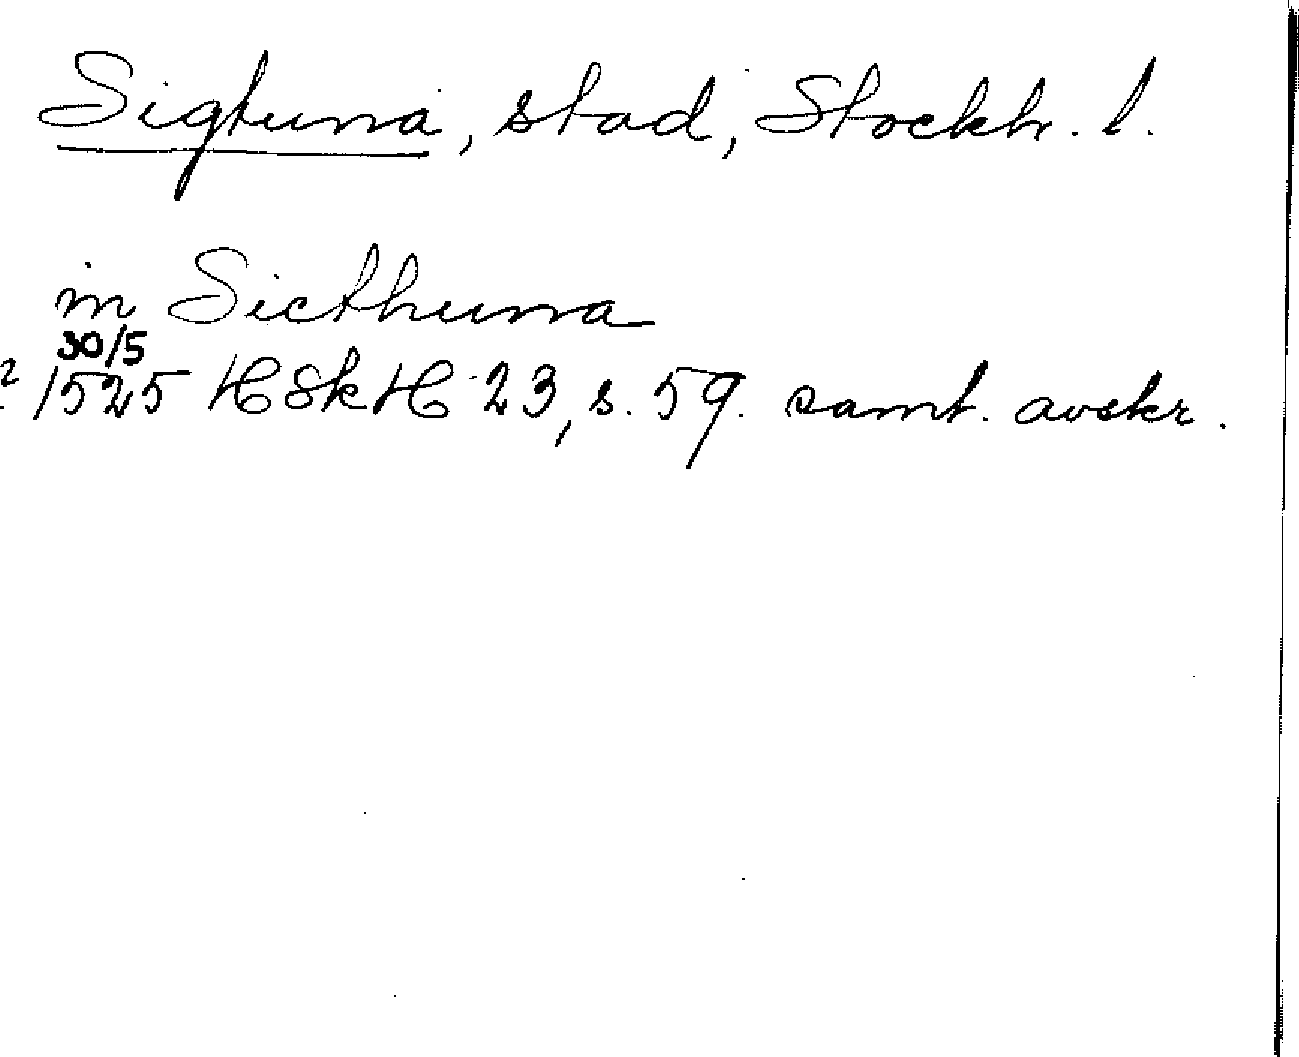 Sigtuna, stad, Stockh. l.
in Sicthuna
30/5
? 1525 HSkH 23, s. 59. samt. avskr.